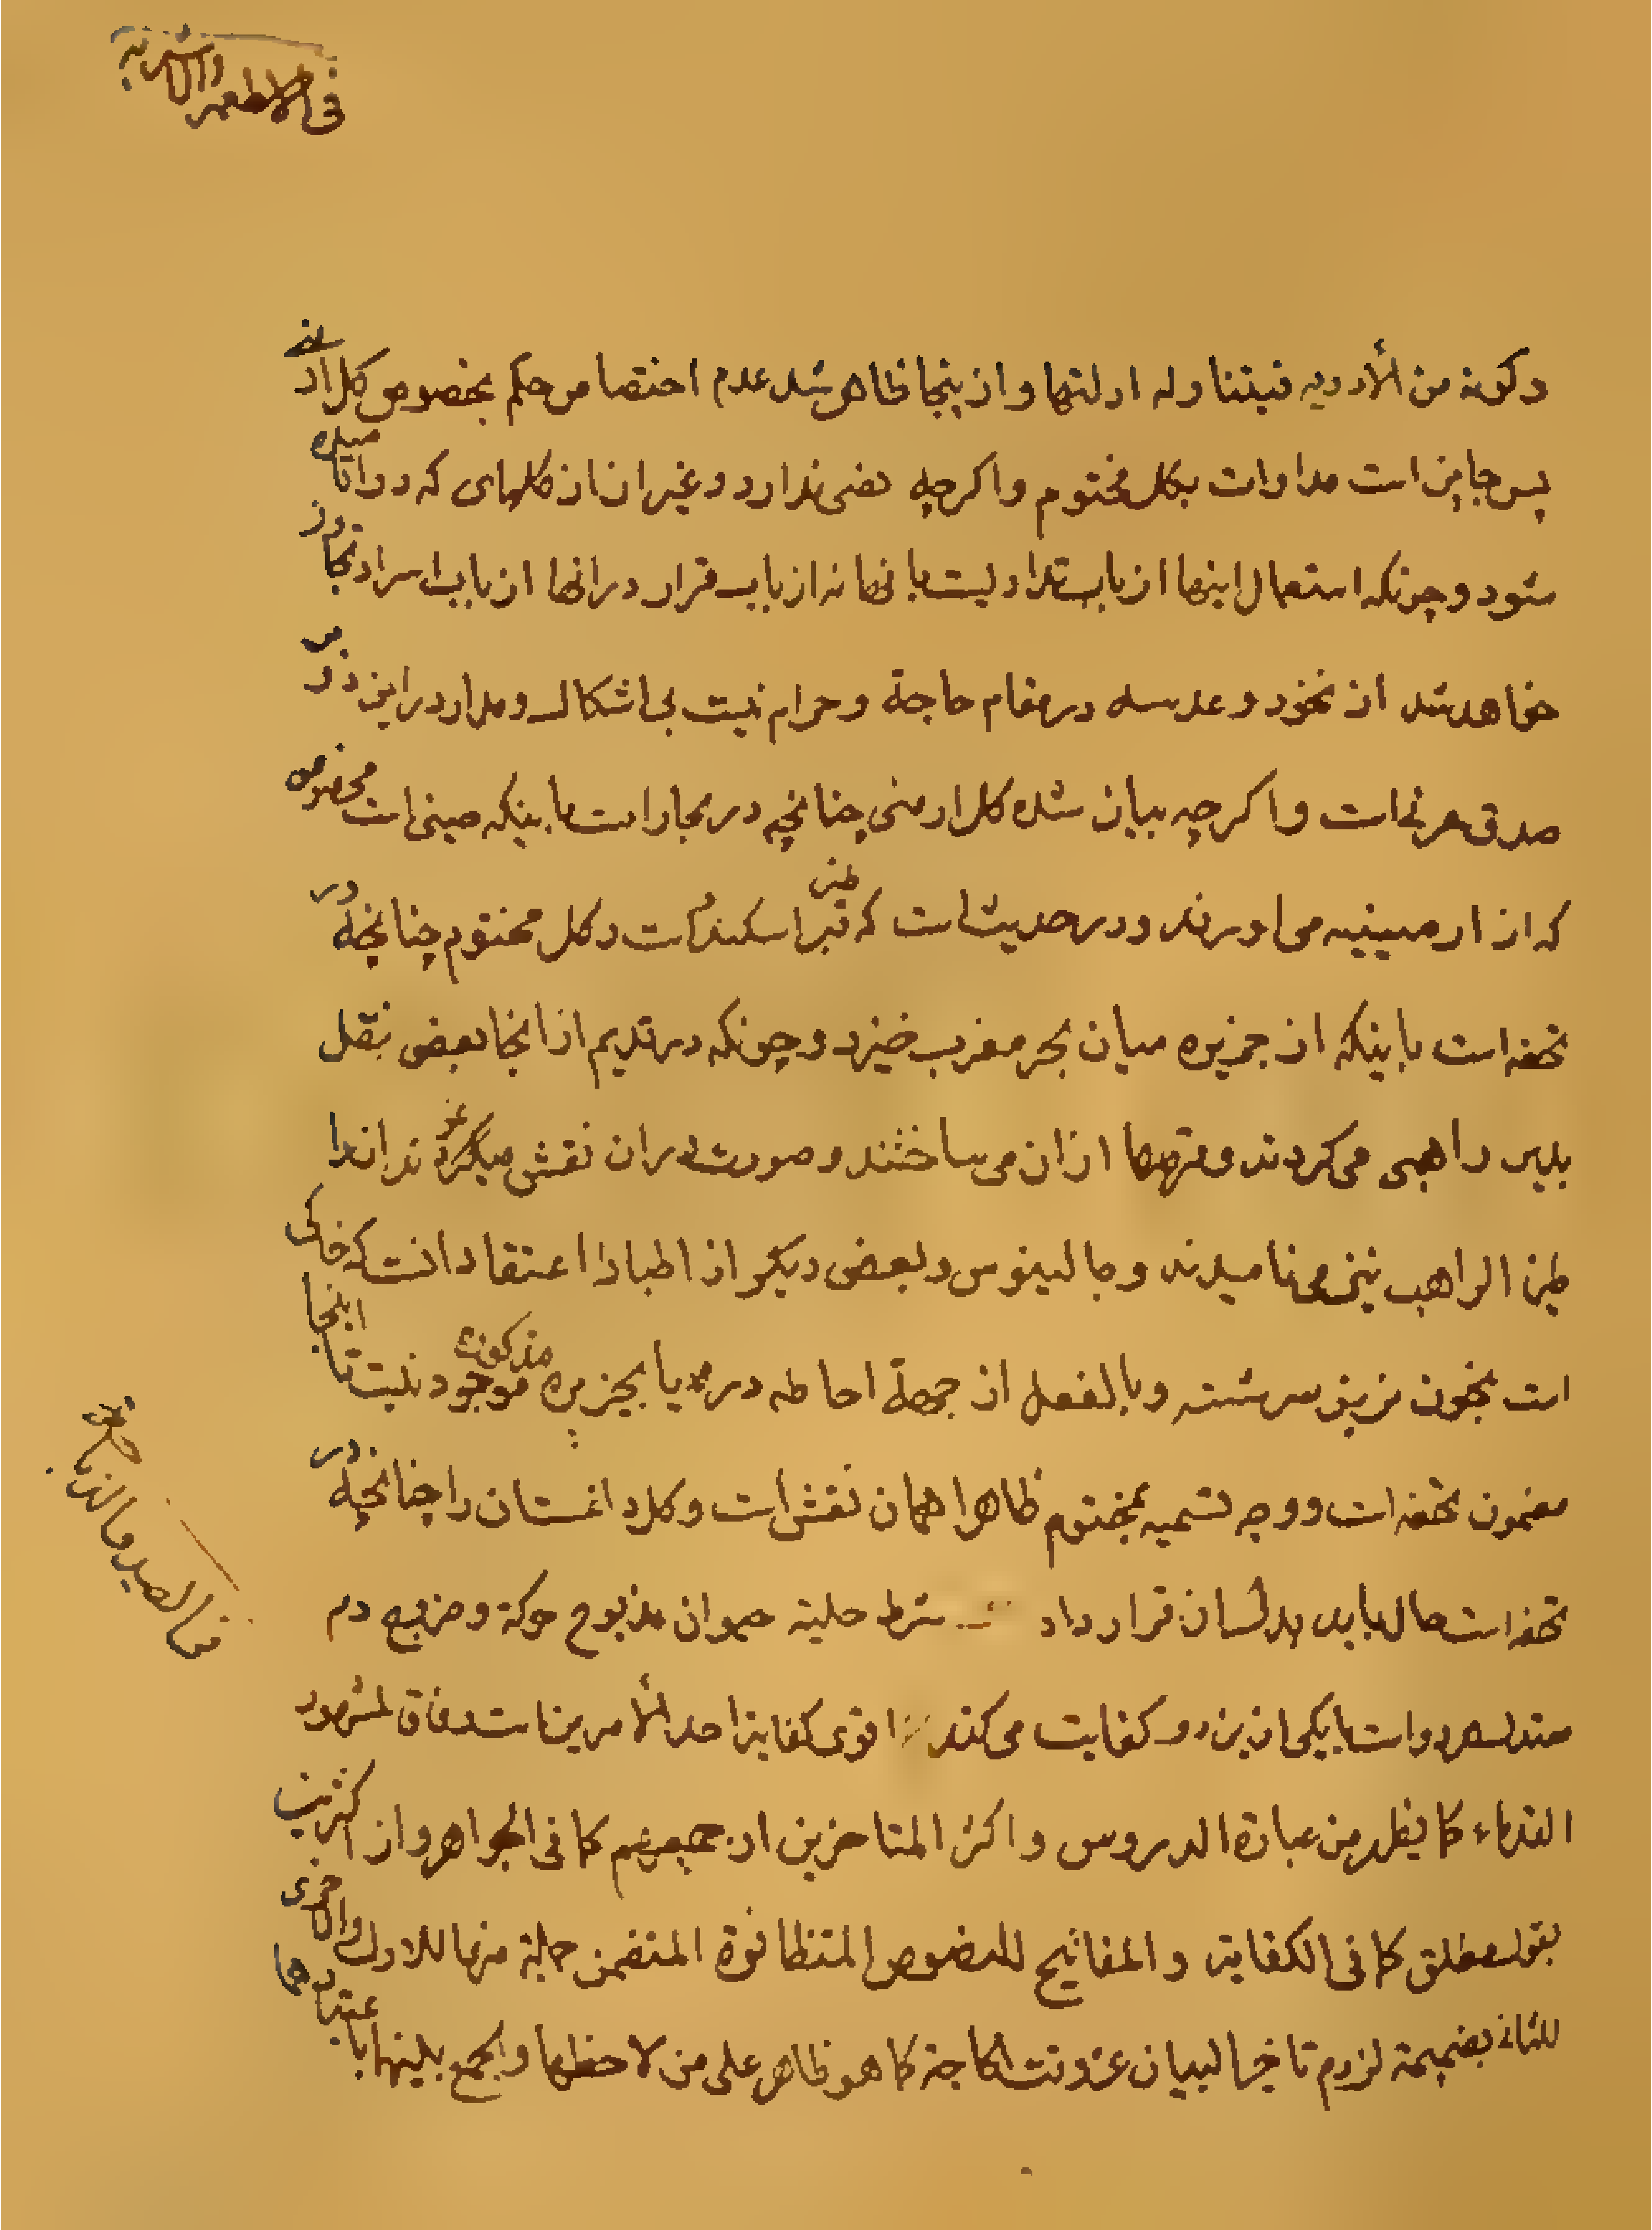 فی الاطعمه والاشربه
و کونه من الأدویه فیتناوله ادلتها و از ینجا ظاهر شد عدم اختصاص حکم بخصوص کل ارمنی
پس جایز است مداوات بکل مختوم و اکرچه نصی ندارد و غیر ان از کلهای که دوا
شود و چونکه استعمال اینها از باب تداویست بانها نه از باب قرار در انها از باب
خواهد شد از نخود و عدسه در مقام حاجة و حرام نیست بی اشکال و مدار در این دو بر
صدق عرفی است و اکرچه بیان شده کل ارمنی چنانچه در بحار است باینکه طینی است مخصوص
که از ارمینیه می اورند و در حدیث است که طین قبر اسکندر است و کل مختوم چنانچه در
تحفه است باینکه از جزیره میان بحر مغرب خیزد و چونکه در قدیم از انجا بعضی نقل
بدیر راهبی می کردند و قرصها از ان می ساختند و صورت در ان نقش میکردند انرا
طین الراهب نیز می نامیدند و جالینوس و بعضی دیکر از اطبا را اعتقاد انست که خاکی
است بخون بز سرشته و بالفعل از جهة احاطه دریا بجزیره مذکوره موجود نیست تا اینجا
مضمون تحفه است و وجه تسمیه بمختوم ظاهرا همان نقش است و کل داغستان را چنانچه در
تحفه است حال باید بدل ان قرار داد شرط حلیة حیوان مذبوح حرکة و خروج دم
معتدل هر دو است یا یکی از ین دو کفایت می کند اقوی کفایة احد الأمرین است وفاق لمشهور
القدماء کما یظهر من عبارة الدروس و اکثر المتاخرین او جمیعهم کما فی الجواهر و از اکثریت
بقول مطلق کما فی الکفایة و المفاتیح للنصوص المتظافرة المتضمن جملة منها للاول و الاخری
للثانی بضمیمة لزوم تاخیر البیان عن وقت الحاجة کما هو ظاهر علی من لاحظها و الجمع بینها باعتبارهما
فی الصید و الذباحة